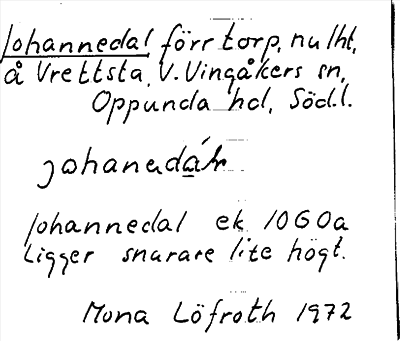 Johannedal förr torp, nu lht,
å Vrettsta, V. Vingåkers sn,
Oppunda hd, Söd.l.
Johannedal ek 10G0a
Ligger snarare lite högt.
Mona Löfroth 1972